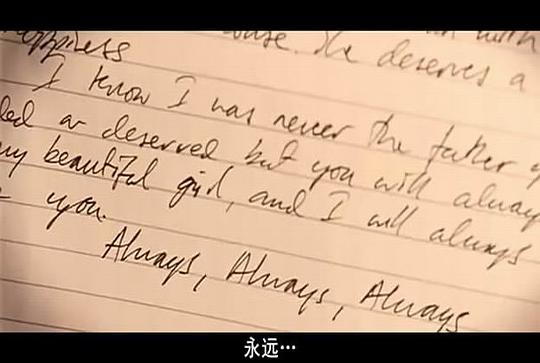 with
happiness
. He deserves a
I know I was never the father y
ded or deserved but you will alway
my beautiful girl, and I will always
you.
Always, Always, Always
永远…